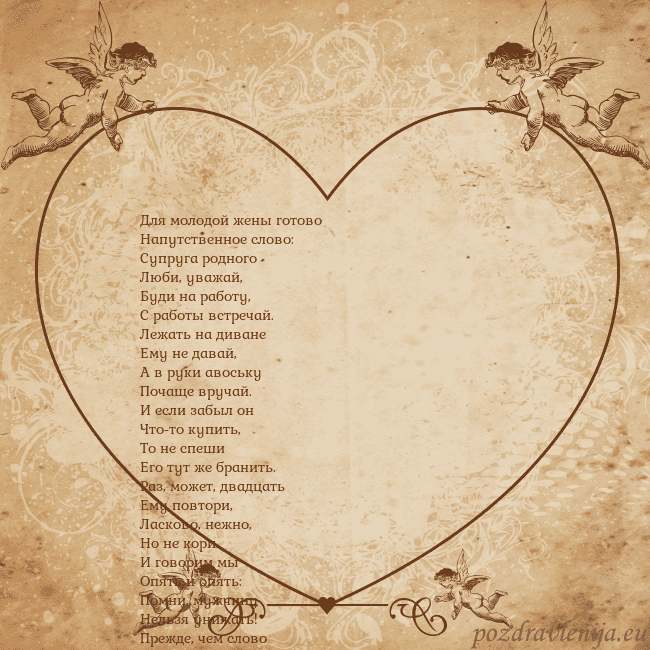 Для молодой жены готово
Напутственное слово:
Супруга родного -
Люби, уважай,
Буди на работу,
С работы встречай.
Лежать на диване
Ему не давай,
А в руки авоську
Почаще вручай.
И если забыл он
Что-то купить,
То не спеши
Его тут же бранить.
Раз, может, двадцать
Ему повтори,
Ласково, нежно,
Но не кори.
И говорим мы
Опять и опять:
Помни, мужчину
Нельзя унижать!
Прежде, чем слово
pozdravlenija.eu